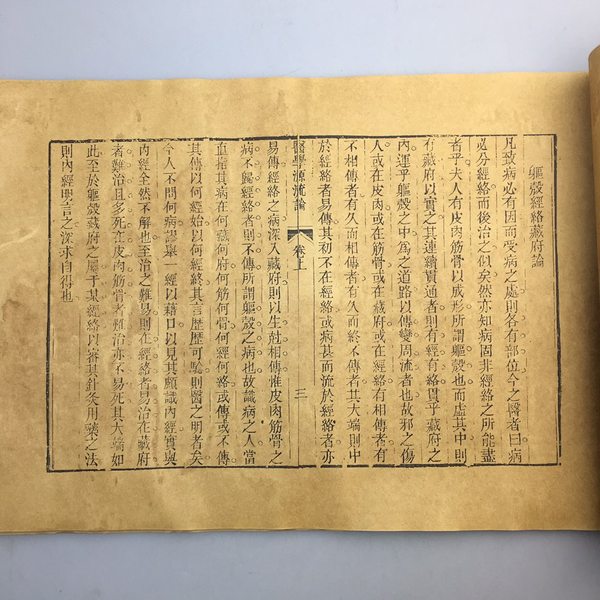 軀殼經絡藏府論
凡致病必有因而受病之處則各有部位今之醫者曰病
必分經絡而後治之似矣然亦知病固非經絡之所能盡
者乎夫人有皮肉筋骨以成形所謂軀殼也而虛其中則
有藏府以實之其連續貫通者則有經有絡貫乎藏府之
內運乎軀殼之中為之道路以傳變周流者也故邪之傷
人或在皮肉或在筋骨或在藏府或在經絡有相傳者有
不相傳者有久而相傳者有久而終不傳者其大端則中
於經絡者易傳其初不在經絡或病甚而流於經絡者亦
醫學源流論 卷上 三
易傳經絡之病深入藏府則以生尅相傳惟皮肉筋骨之
病不歸經絡者則不傳所謂軀殼之病也故識病之人當
直指其病在何藏何府何筋何骨何經何絡或傳或不傳
其傳以何經始以何經終其言歷歷可驗則醫之明者矣
今人不問何病謬舉一經以藉口以見其頗識內經實與
內經全然不解也至治之難易則在經絡者易治在藏府
者難治且多死在皮肉筋骨者難治亦不易死其大端如
此至於軀殼藏府之屬于某經絡以審其針灸用藥之法
則內經明言之深求自得也